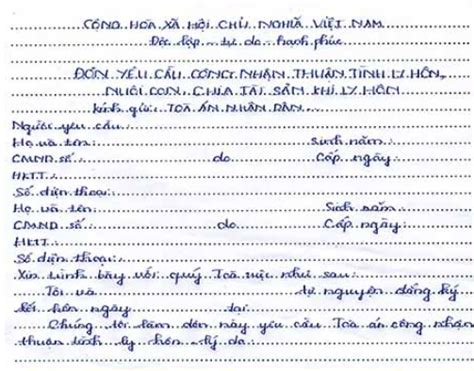 CỘNG HÒA XÃ HỘI CHỦ NGHĨA VIỆT NAM
Độc lập - tự do - hạnh phúc
ĐƠN YÊU CẦU CÔNG NHẬN THUẬN TÌNH LY HÔN,
NUÔI CON, CHIA TÀI SẢN KHI LY HÔN
kính gửi: TOÀ ÁN NHÂN DÂN
Người yêu cầu:
Họ và tên: Sinh năm:
CMND số: do Cấp ngày:
HKTT:
Số điện thoại:
Họ và tên: Sinh năm:
CMND số: do Cấp ngày:
HKTT:
Số điện thoại:
Xin trình bày với quý Toà việc như sau:
Tôi và tự nguyện đăng ký
kết hôn ngày tại
Chúng tôi làm đơn này yêu cầu Toà án công nhận
thuận tình ly hôn - lý do: